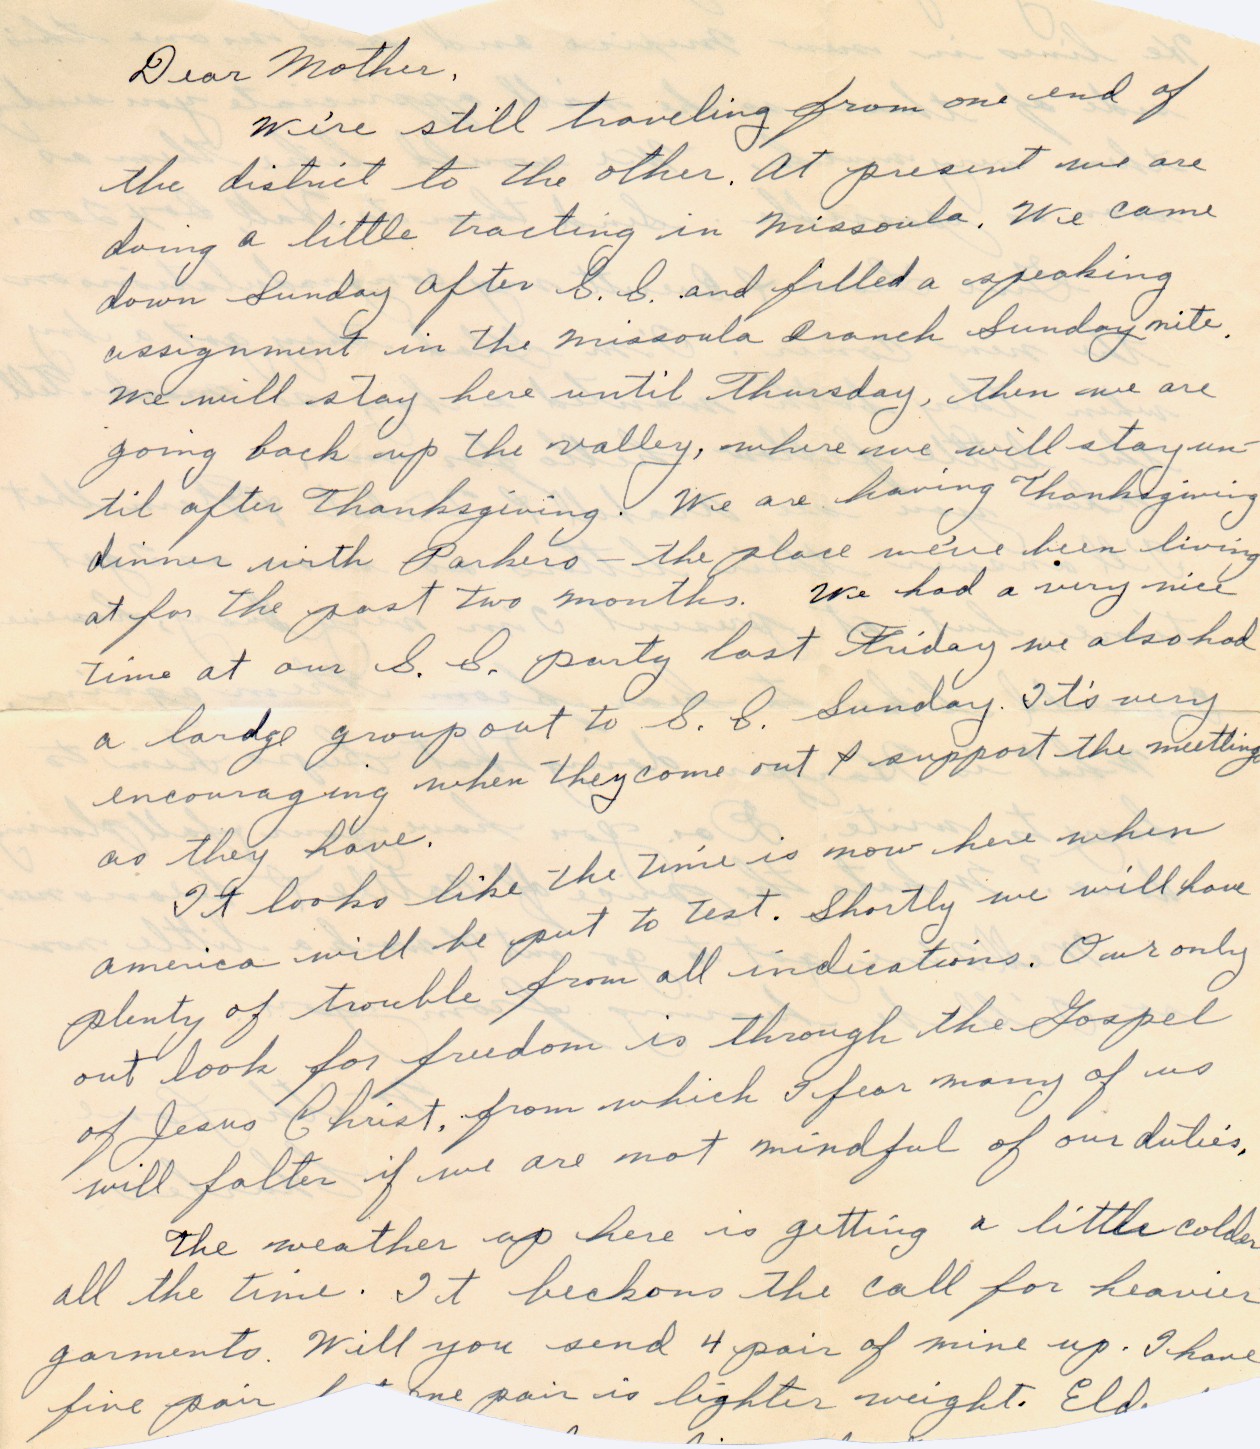 Dear Mother,
We're still traveling from one end of
the district to the other. At present we are
doing a little tracting in Missoula. We came
down Sunday after S. S. and filled a speaking
assignment in the Missoula Branch Sunday nite.
We will stay here until Thursday, then we are
going back up the valley, where we will stay un-
til after Thanksgiving. We are having Thanksgiving
dinner with Parkers — the place we've been living
at for the past two months. We had a very nice
time at our S. S. party last Friday we also had
a lardge group out to S. S. Sunday. It's very
encouraging when they come out & support the meetings
as they have.
It looks like the time is now here when
America will be put to test. Shortly we will have
plenty of trouble from all indications. Our only
out look for freedom is through the Gospel
of Jesus Christ, from which I fear many of us
will falter if we are not mindful of our duties,
The weather up here is getting a little colder
all the time. It beckons the call for heavier
garments. Will you send 4 pair of mine up. I have
five pair one pair is lighter weight. Eld.